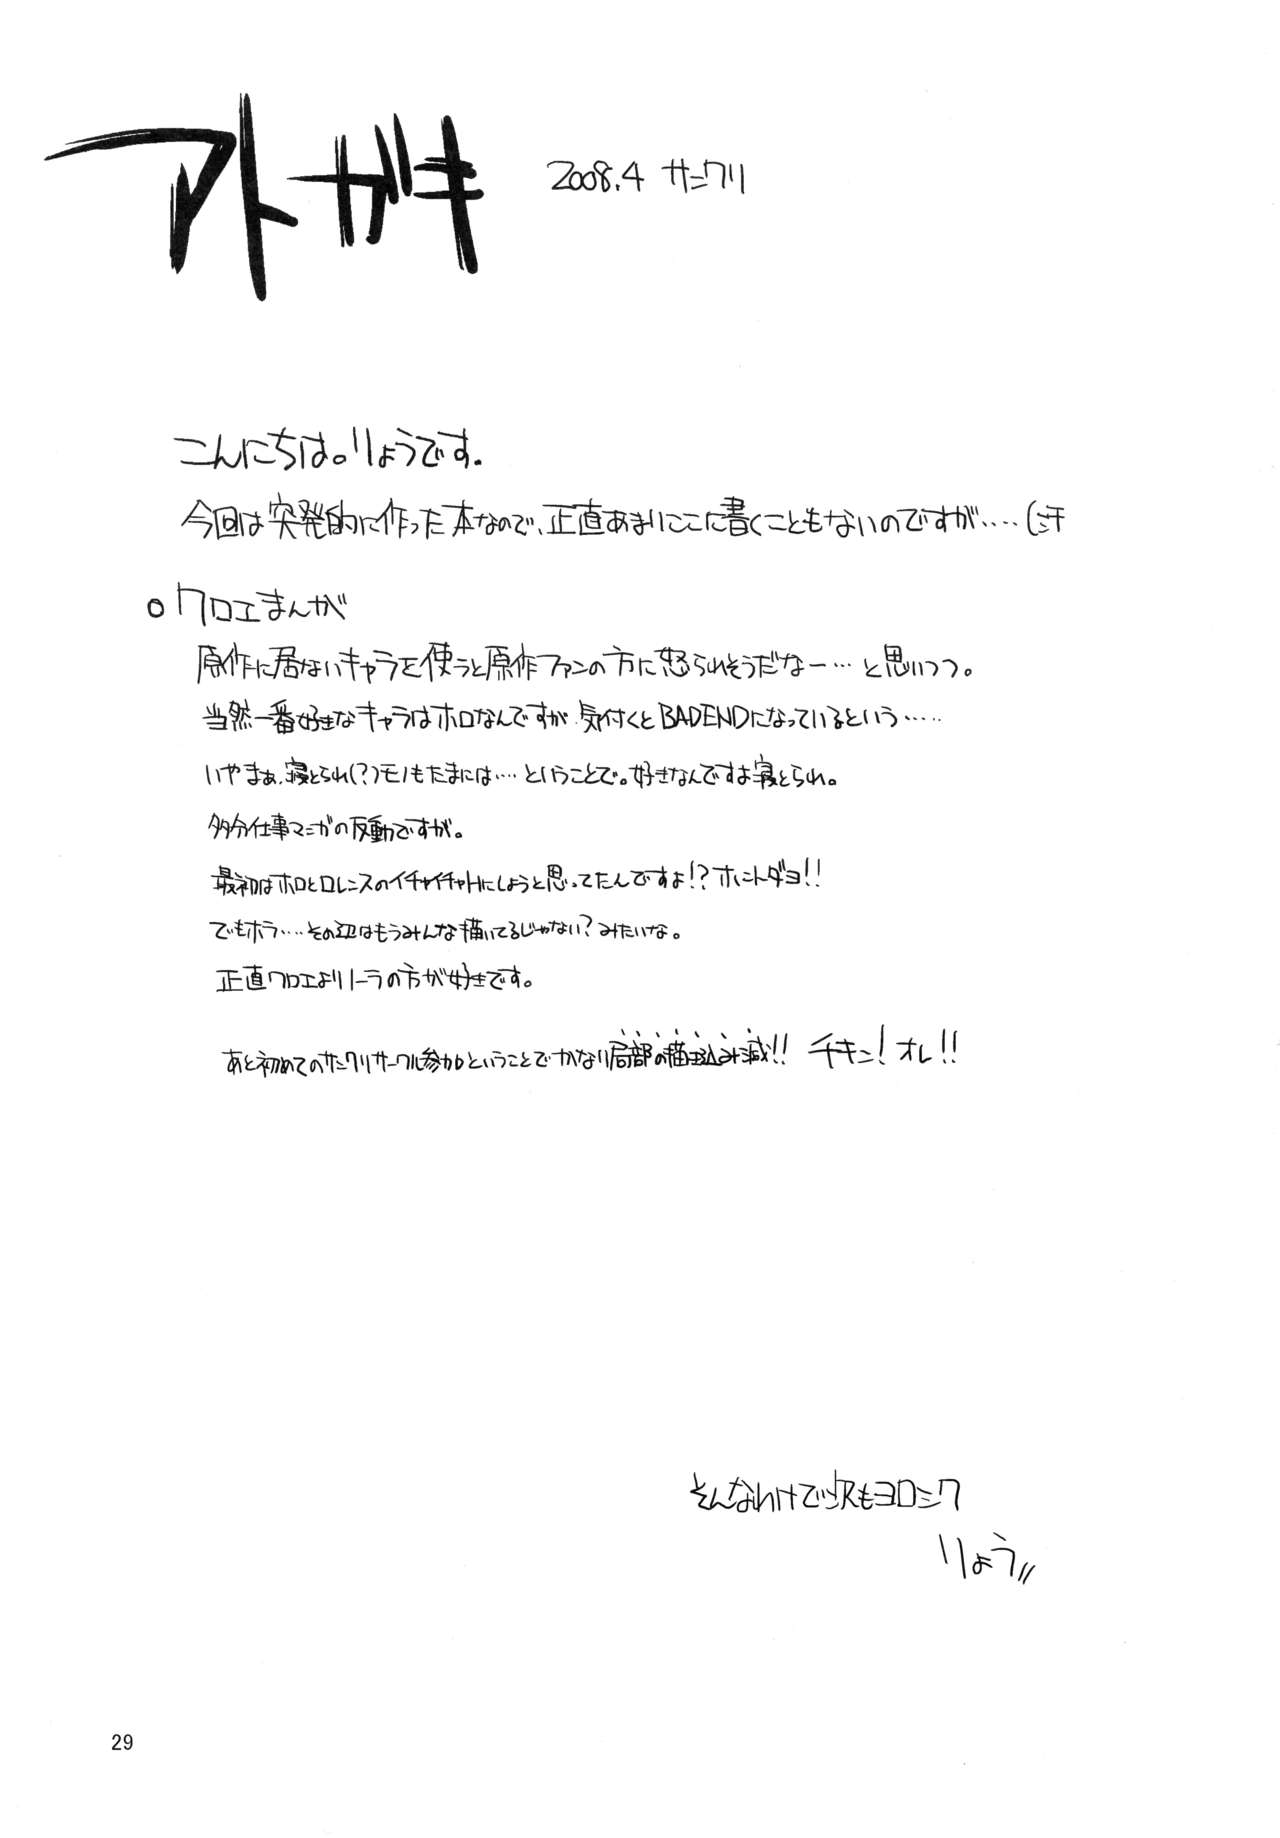 アトガキ
2008.4 サンクリ
こんにちは。りょうです。
今回は突発的に作った本なので、正直あまりここに書くこともないのですが‥‥(汗
○クロエまんが
原作に居ないキャラを使うと原作ファンの方に怒られそうだなー‥‥と思いつつ。
当然一番好きなキャラはホロなんですが気付くとBADENDになっているという‥‥‥
いやまぁ、寝とられ(?)モノもたまには‥‥ということで。好きなんですよ寝とられ。
多分仕事マンガの反動ですが。
最初はホロとロレンスのイチャイチャHにしようと思ってたんですよ!?ホントダヨ!!
でもホラ‥‥その辺はもうみんな描いてるじゃない?みたいな。
正直クロエよりノーラの方が好きです。
あと初めてのサンクリサークル参加ということでかなり局部の描き込み減!! チキン!オレ!!
そんなわけで次もヨロシク
りょう//
29